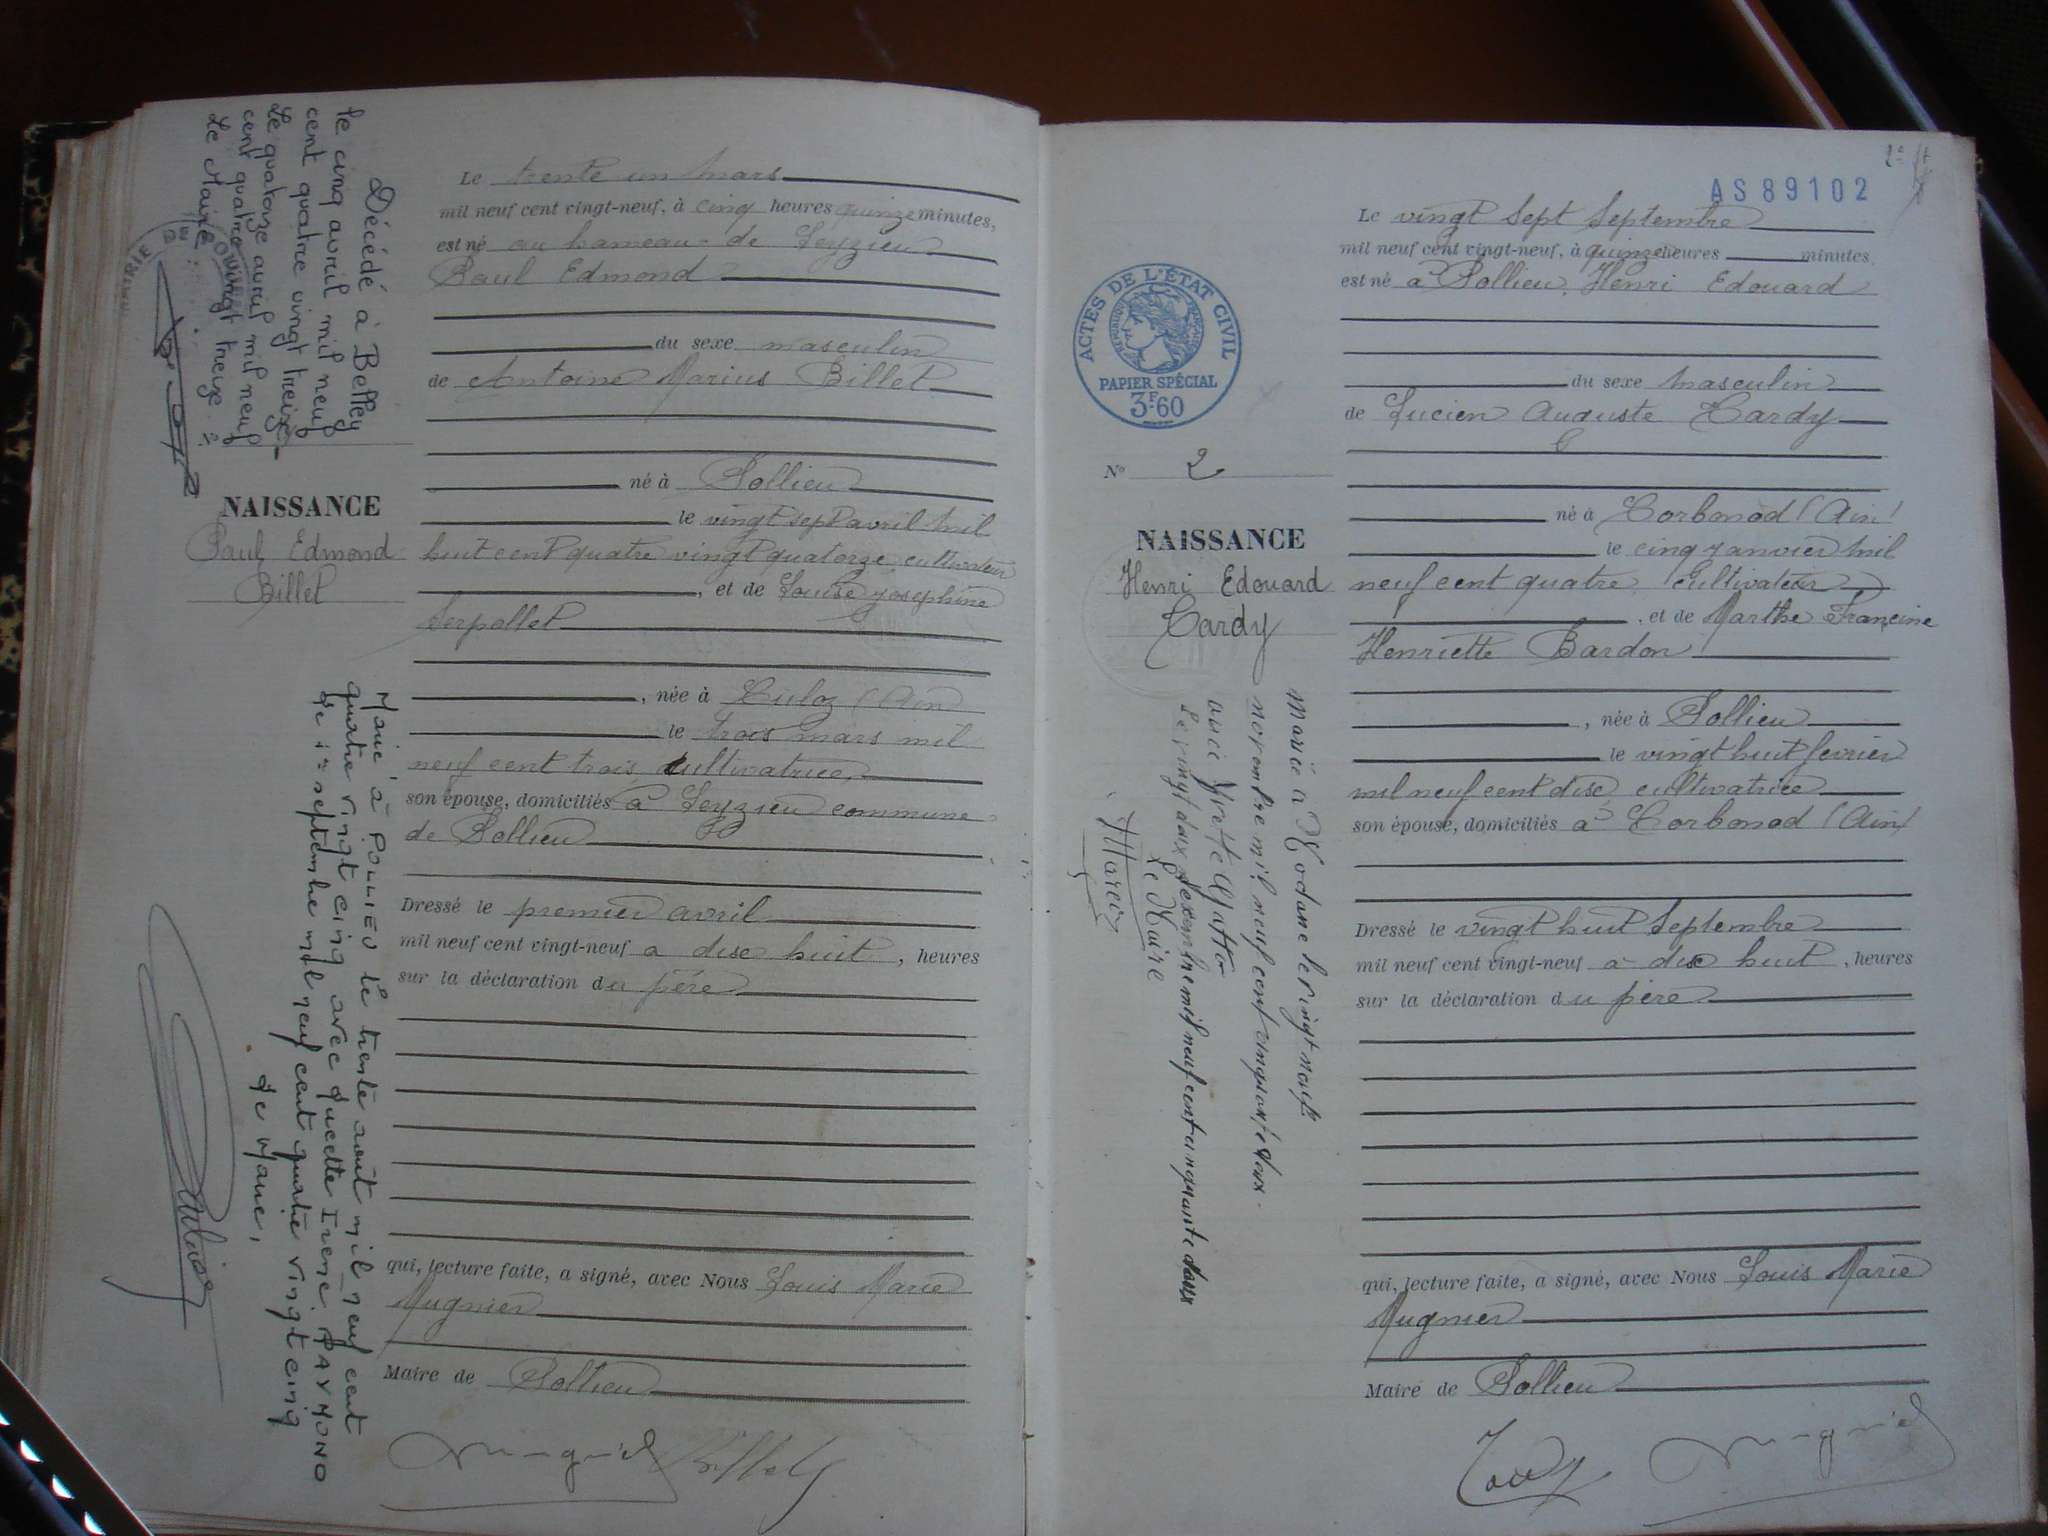 Décédé à Belley
le cinq avril mil neuf
cent quatre vingt treize
Le quatorze avril mil neuf
cent quatre vingt treize
Le Maire
NAISSANCE
Paul Edmond
Billet
Marié à POLLIEU le trente août mil neuf cent
quatre vingt cinq avec Lucette Irène RAYMOND
Le 1er septembre mil neuf cent quatre vingt cinq
Le Maire,
Le trente un Mars
mil neuf cent vingt-neuf, à cinq heures quinze minutes,
est né au hameau de Leyzieu
Paul Edmond
du sexe masculin
de Antoine Marius Billet
né à Pollieu
le vingt sept avril mil
huit cent quatre vingt quatorze cultivateur
, et de Louise Joséphine
Serpollet
, née à Culoz (Ain
le trois mars mil
neuf cent trois, cultivatrice,
son épouse, domiciliés à Leyzieu commune
de Pollieu
Dressé le premier avril
mil neuf cent vingt-neuf à dix huit, heures
sur la déclaration du père
qui, lecture faite, a signé, avec Nous Louis Marie
Mugnier
Maire de Pollieu
Mugnier Billet
AS89102
ACTES DE L'ÉTAT CIVIL
RÉPUBLIQUE FRANÇAISE
PAPIER SPÉCIAL
3F.60
N° 2
NAISSANCE
Henri Edouard
Tardy
Marié à Modane le vingt neuf
novembre mil neuf cent cinquante deux
avec
Le vingt deux décembre mil neuf cent cinquante deux
Le Maire
Le vingt sept Septembre
mil neuf cent vingt-neuf, à quinze heures minutes,
est né à Pollieu, Henri Edouard
du sexe masculin
de Lucien Auguste Tardy
né à Corbonod (Ain)
le cinq janvier mil
neuf cent quatre cultivateur
, et de Marthe Francine
Henriette Bardon
, née à Pollieu
le vingt huit février
mil neuf cent dix cultivatrice
son épouse, domiciliés à Corbonod (Ain)
Dressé le vingt huit Septembre
mil neuf cent vingt-neuf à dix huit, heures
sur la déclaration du père
qui, lecture faite, a signé, avec Nous Louis Marie
Mugnier
Maire de Pollieu
Tardy Mugnier